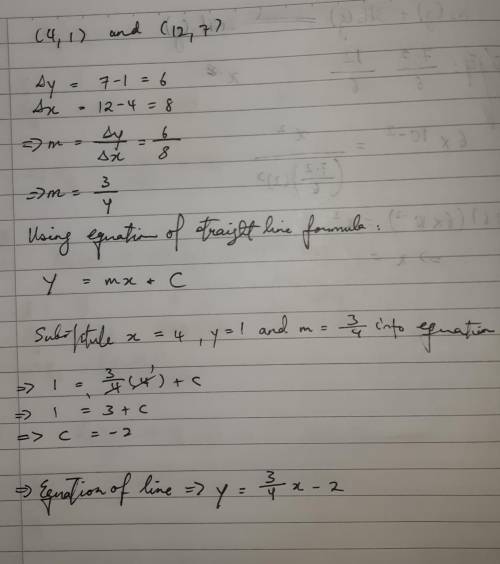 (4,1) and (12,7)
Δy = 7-1 = 6
Δx = 12-4 = 8
=> m = Δy/Δx = 6/8
=> m = 3/4
Using equation of straight line formula:
y = mx + C
Substitute x = 4, y=1 and m = 3/4 into equation
=> 1 = 3/4(4) + c
=> 1 = 3 + c
=> c = -2
=> Equation of line => y = 3/4 x - 2